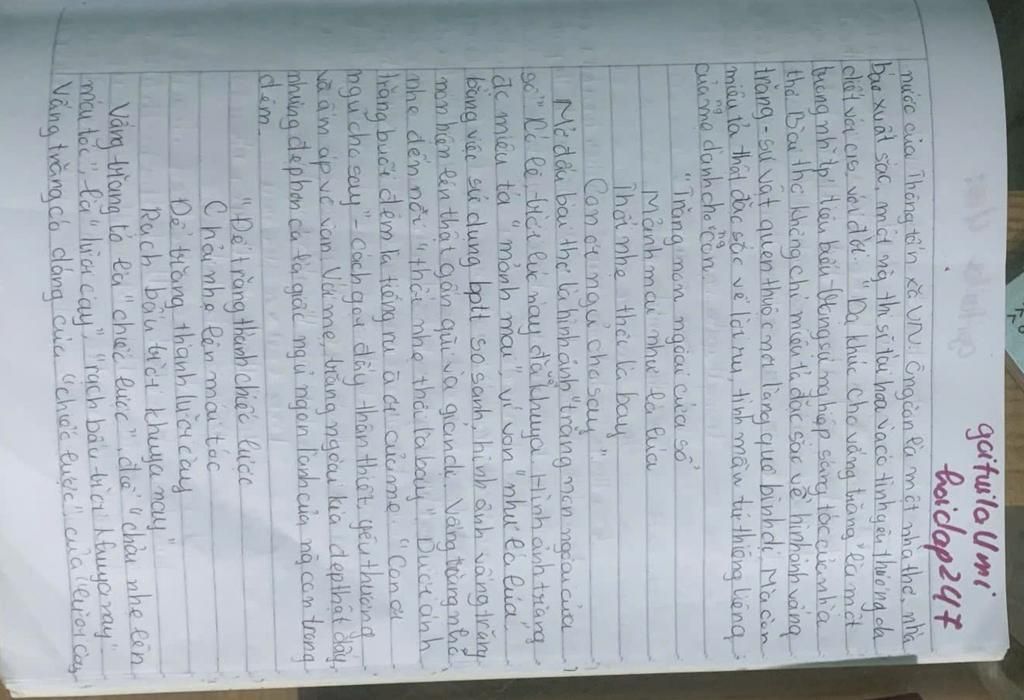 gaituilaUmi
hoidap247
nước của Thông tấn xã VN. Ông còn là một nhà thơ, nhà
báo xuất sắc, một ng thi sĩ tài hoa và có tình yêu thương da
diết với c/s, với đời. "Dạ khúc cho vầng trăng" là một
trong nh~ t/p tiêu biểu trong sự nghiệp sáng tác của nhà
thơ. Bài thơ không chỉ miêu tả đặc sắc về hình ảnh vầng
trăng - sự vật quen thuộc nơi làng quê bình dị. Mà còn
miêu tả thật đặc sắc về lời ru, tình mẫu tử thiêng liêng
của ng mẹ dành cho ng con.
"Trăng non ngoài cửa sổ
Mảnh mai như lá lúa
Thổi nhẹ thôi là bay
Con ơi ngủ cho say"
Mở đầu bài thơ là hình ảnh "trăng non ngoài cửa
sổ". Có lẽ trời lúc này đã về khuya. Hình ảnh trăng
đc miêu tả "mảnh mai", ví von "như lá lúa".
Bằng việc sử dụng bptt so sánh, hình ảnh vầng trăng
non hiện lên thật gần gũi và giản dị. Vầng trăng nhỏ
nhẹ đến nỗi "thổi nhẹ thôi là bay". Dưới ánh
trăng buổi đêm là tiếng ru à ơi của mẹ. "Con ơi
ngủ cho say" - cách gọi đầy thân thiết, yêu thương
và ấm áp vc van. Với mẹ, trăng ngoài kia đẹp thật đấy
nhưng đẹp hơn cả là giấc ngủ ngon lành của ng con trong
đêm.
"Để trăng thành chiếc lược
Chải nhẹ lên mái tóc
Để trăng thành lưỡi cày
Rạch bầu trời khuya nay"
Vầng trăng ấy là "chiếc lược", để "chải nhẹ lên
mái tóc", là "lưỡi cày", "rạch bầu trời khuya nay"
Vầng trăng có dáng của "chiếc lược" của "lưỡi cày"